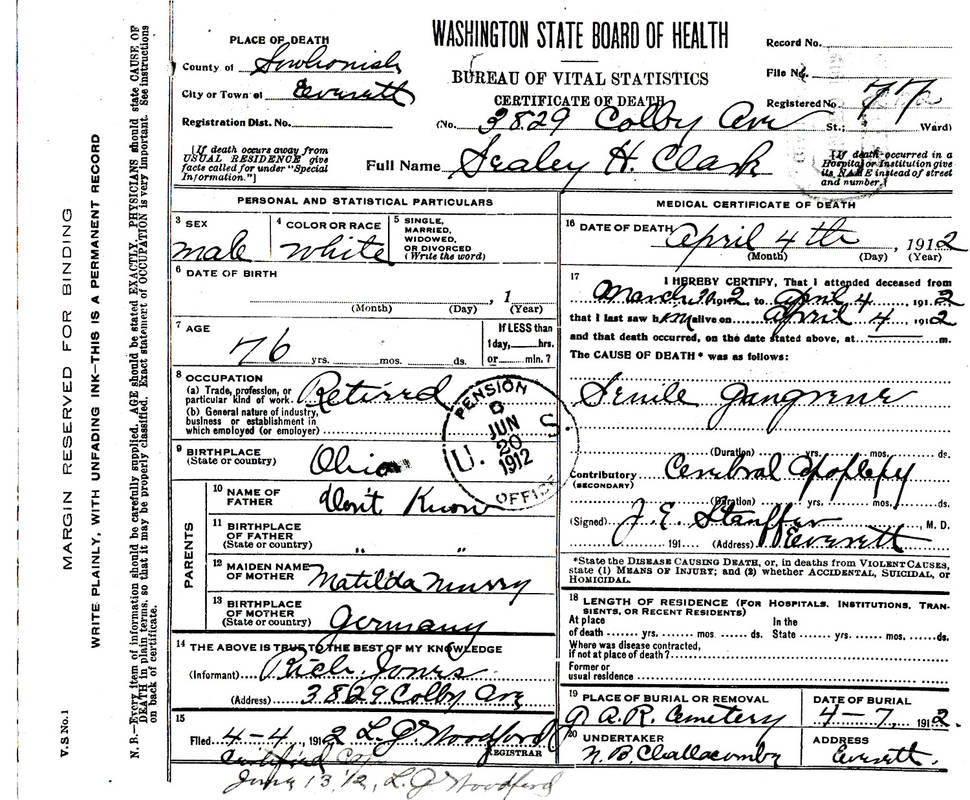 WASHINGTON STATE BOARD OF HEALTH
BUREAU OF VITAL STATISTICS
CERTIFICATE OF DEATH
PLACE OF DEATH
County of Snohomish
City or Town of Everett
Registration Dist. No.
Record No.
File No.
Registered No 77
(No. 3829 Colby Ave St.; Ward)
[If death occurs away from
USUAL RESIDENCE give
facts called for under "Special
Information."]
Full Name Sealey H. Clark
[If death occurred in a
Hospital or Institution give
its NAME instead of street
and number.]
PERSONAL AND STATISTICAL PARTICULARS
3 SEX
male
4 COLOR OR RACE
white
5 SINGLE,
MARRIED,
WIDOWED,
OR DIVORCED
(Write the word)
6 DATE OF BIRTH
, 1
(Month) (Day) (Year)
7 AGE
76 yrs. mos. ds.
If LESS than
1 day, hrs.
or min. ?
8 OCCUPATION
(a) Trade, profession, or
particular kind of work Retired
(b) General nature of industry,
business or establishment in
which employed (or employer)
9 BIRTHPLACE
(State or country) Ohio
PARENTS
10 NAME OF
FATHER Don't Know
11 BIRTHPLACE
OF FATHER
(State or country) " "
12 MAIDEN NAME
OF MOTHER Matilda Murry
13 BIRTHPLACE
OF MOTHER
(State or country) Germany
14 THE ABOVE IS TRUE TO THE BEST OF MY KNOWLEDGE
(Informant) Rich. Jones
(Address) 3829 Colby Ave
15
Filed 4-4, 1912 L. G. Woodford
REGISTRAR
Certified Copy
June 13, 12, L. G. Woodford
MEDICAL CERTIFICATE OF DEATH
16 DATE OF DEATH April 4th, 1912
(Month) (Day) (Year)
17
I HEREBY CERTIFY, That I attended deceased from
March 1912 to April 4, 1912
that I last saw him alive on April 4, 1912
and that death occurred, on the date stated above, at m.
The CAUSE OF DEATH * was as follows:
Senile Gangrene
(Duration) yrs. mos. ds.
Contributory Cerebral Apoplexy
(SECONDARY)
(Duration) yrs. mos. ds.
(Signed) J. E. Stauffer, M. D.
191 (Address) Everett
*State the DISEASE CAUSING DEATH, or, in deaths from VIOLENT CAUSES,
state (1) MEANS OF INJURY; and (2) whether ACCIDENTAL, SUICIDAL, or
HOMICIDAL.
18 LENGTH OF RESIDENCE (FOR HOSPITALS, INSTITUTIONS, TRAN-
SIENTS, OR RECENT RESIDENTS)
At place In the
of death yrs. mos ds. State yrs. mos. ds.
Where was disease contracted,
if not at place of death?
Former or
usual residence
19 PLACE OF BURIAL OR REMOVAL
G. A. R. Cemetery
DATE OF BURIAL
4-7, 1912.
20 UNDERTAKER
N. B. Challacombe
ADDRESS
Everett.
PENSION
JUN
20
1912
U. S.
OFFICE
MARGIN RESERVED FOR BINDING
WRITE PLAINLY, WITH UNFADING INK—THIS IS A PERMANENT RECORD
N. B.—Every item of information should be carefully supplied. AGE should be stated EXACTLY. PHYSICIANS should state CAUSE OF
DEATH in plain terms, so that it may be properly classified. Exact statement of OCCUPATION is very important. See instructions
on back of certificate.
V. S No. 1